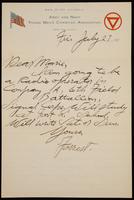 ARMY AND NAVY
YOUNG MEN'S CHRISTIAN ASSOCIATION
Fri July 27
Dear Marie,
I am going to be
a Radio operator in
Company A, 6th Field
Battalion,
Signal Corps, will study
at Post School
Will write Later
Yours
Forrest